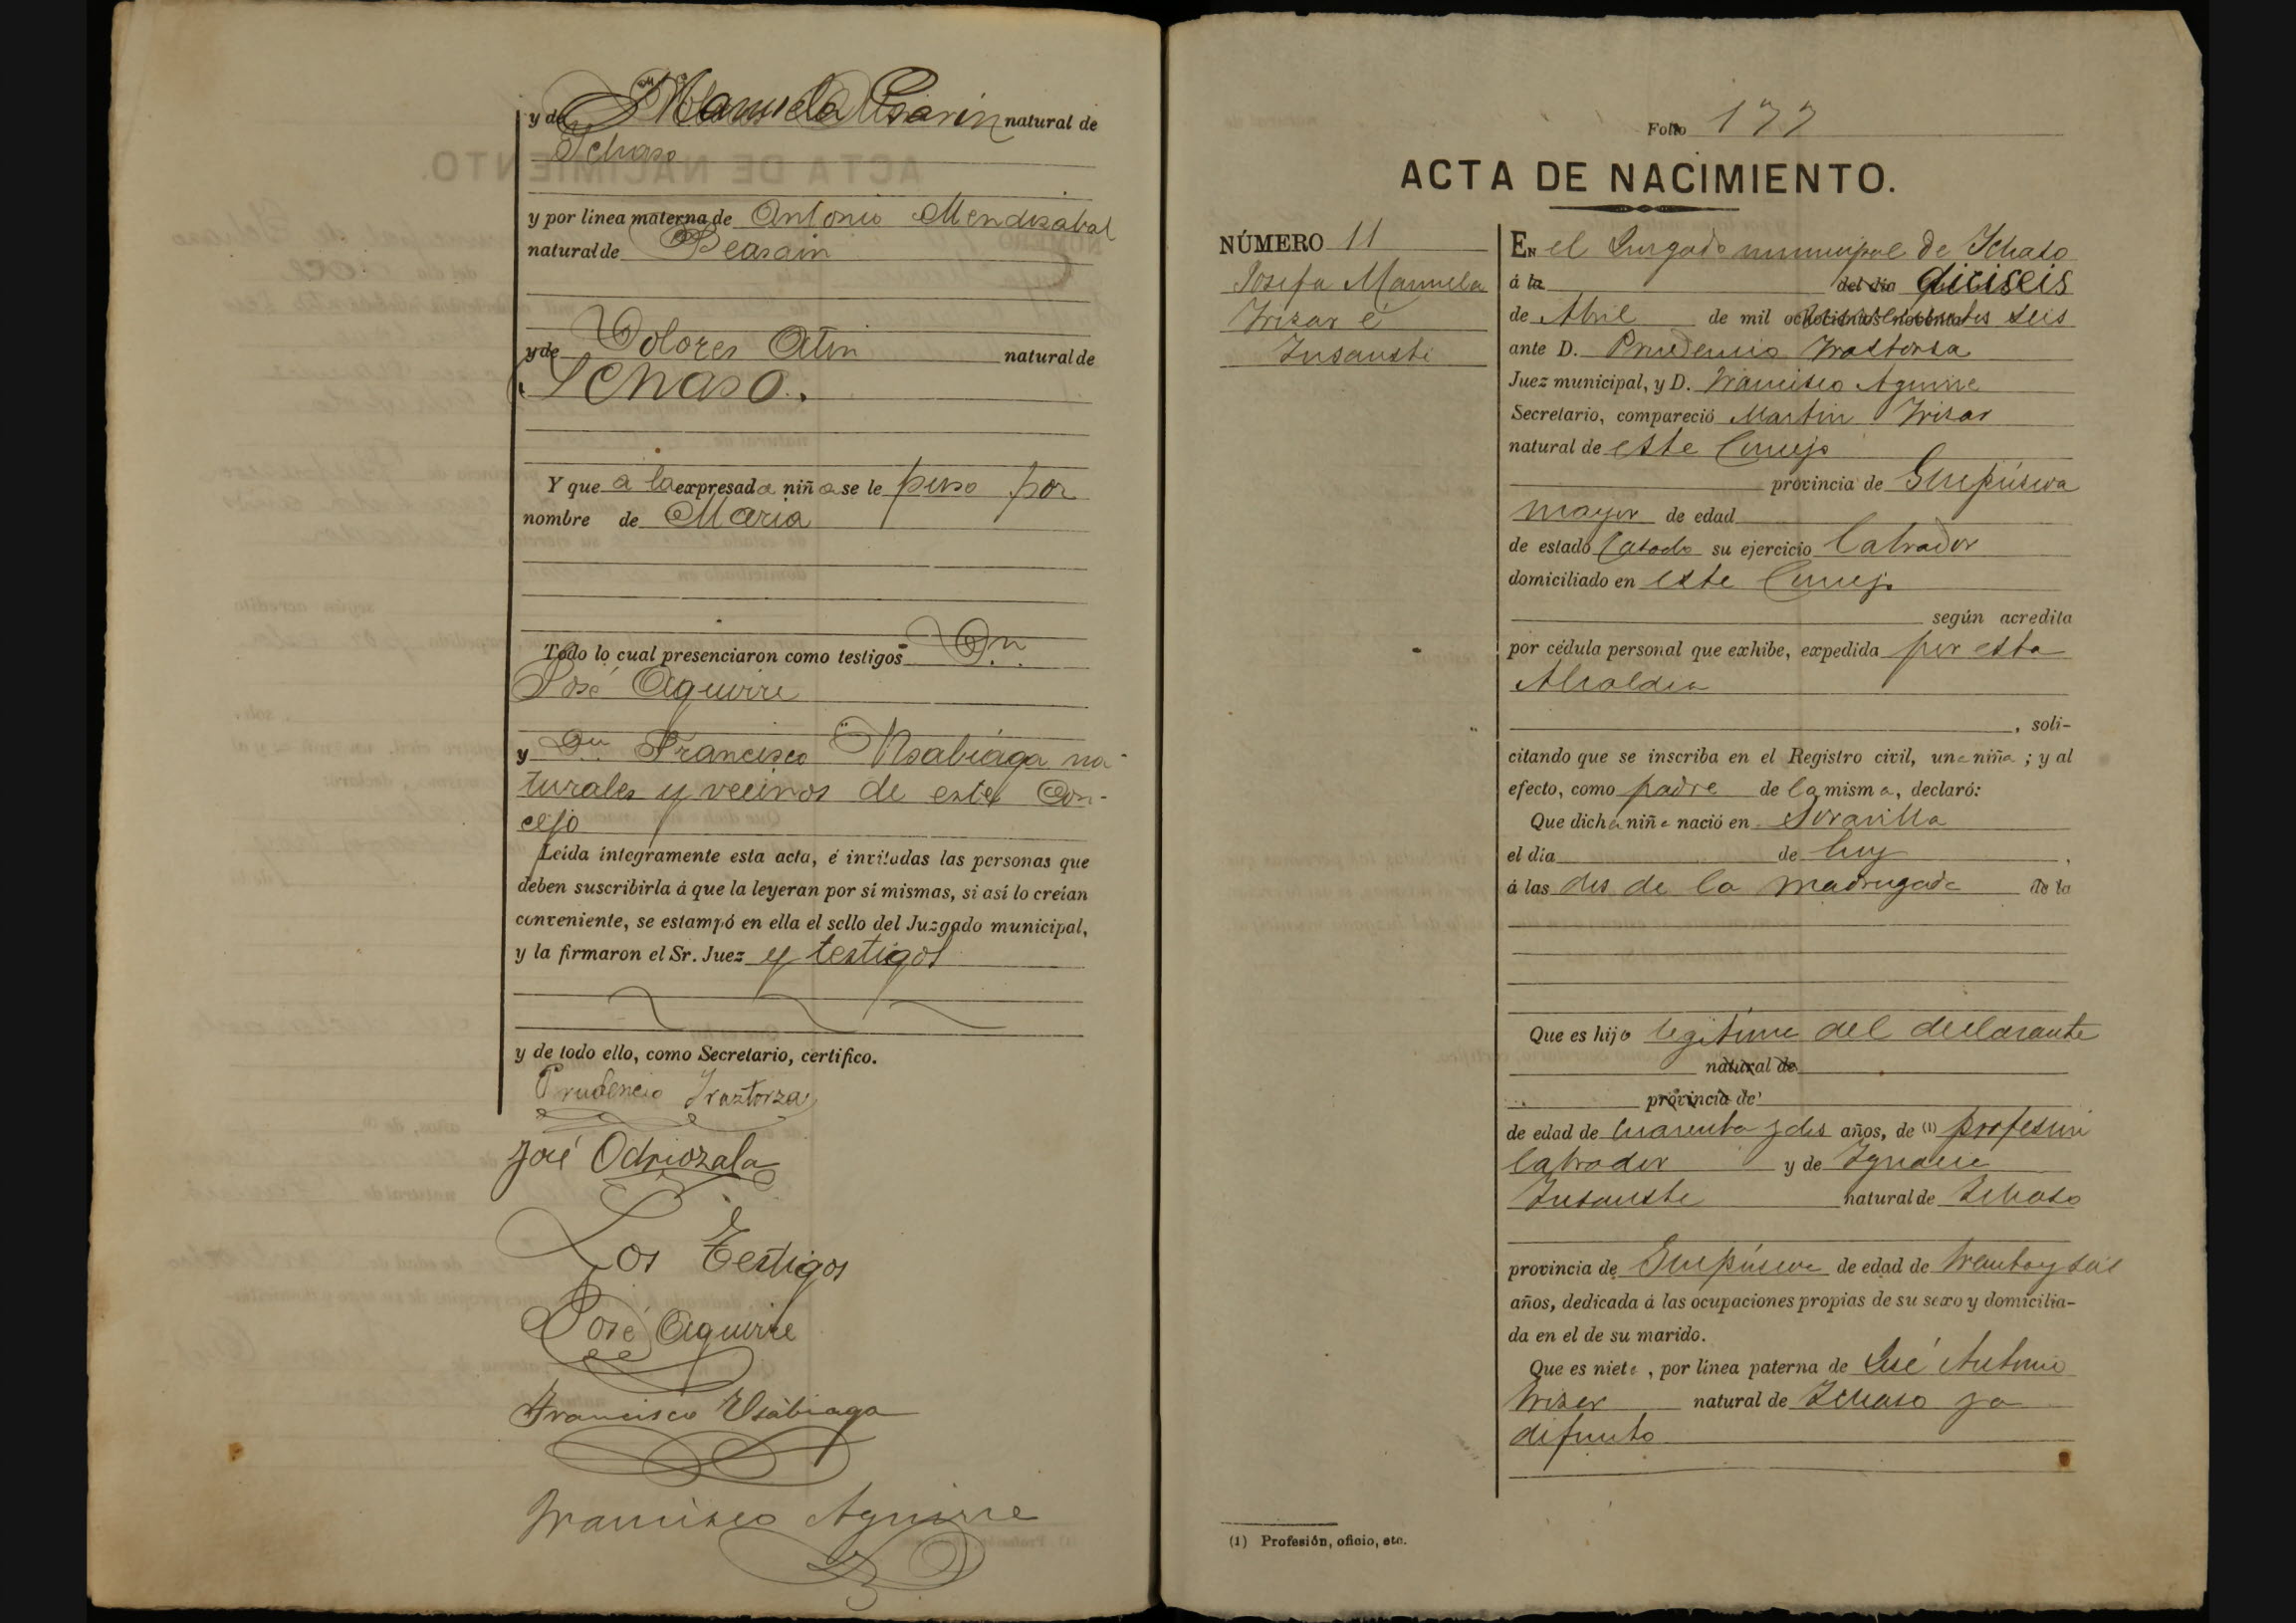 y de Manuela natural de
Ichaso
y por línea materna de Antonio Mendizabal
natural de Beasain
y de Dolores Otin natural de
Ichaso.
Y que a la expresada niña se le puso por
nombre de Maria
Todo lo cual presenciaron como testigos Dn.
José Aguirre
y Dn. Francisco Usabiaga na-
turales y vecinos de este Con-
cejo
Leída íntegramente esta acta, é invitadas las personas que
deben suscribirla á que la leyeran por sí mismas, si así lo creían
conveniente, se estampó en ella el sello del Juzgado municipal,
y la firmaron el Sr. Juez y testigos
y de todo ello, como Secretario, certifico.
Prudencio Iraztorza
José Odriozala
Los Testigos
José Aguirre
Francisco Usabiaga
Francisco Aguirre
Folio 177
ACTA DE NACIMIENTO.
NÚMERO 11
Josefa Manuela
Irizar é
Insausti
En el Jurgado municipal de Ichaso
á la del dia diciseis
de Abril de mil novecientos seis
ante D. Prudencio Iraztorza
Juez municipal, y D. Francisco Aguirre
Secretario, compareció Martin Irizar
natural de este Concejo
provincia de Guipúzcoa
mayor de edad
de estado Casado su ejercicio labrador
domiciliado en este Concejo
según acredita
por cédula personal que exhibe, expedida por esta
Alcaldia
, soli-
citando que se inscriba en el Registro civil, una niña ; y al
efecto, como padre de la misma, declaró:
Que dicha niña nació en Soravilla
el dia de hoy ,
á las dos de la madrugada de la
Que es hijo legitimo del declarante
natural de
provincia de
de edad de cuarenta y dos años, de (1) profesion
labrador y de Ignacia
Insausti natural de Ichaso
provincia de Guipúzcoa de edad de treinta y seis
años, dedicada á las ocupaciones propias de su sexo y domicilia-
da en el de su marido.
Que es nieta , por línea paterna de José Antonio
Irizar natural de Ichaso ya
difunto
(1) Profesión, oficio, etc.